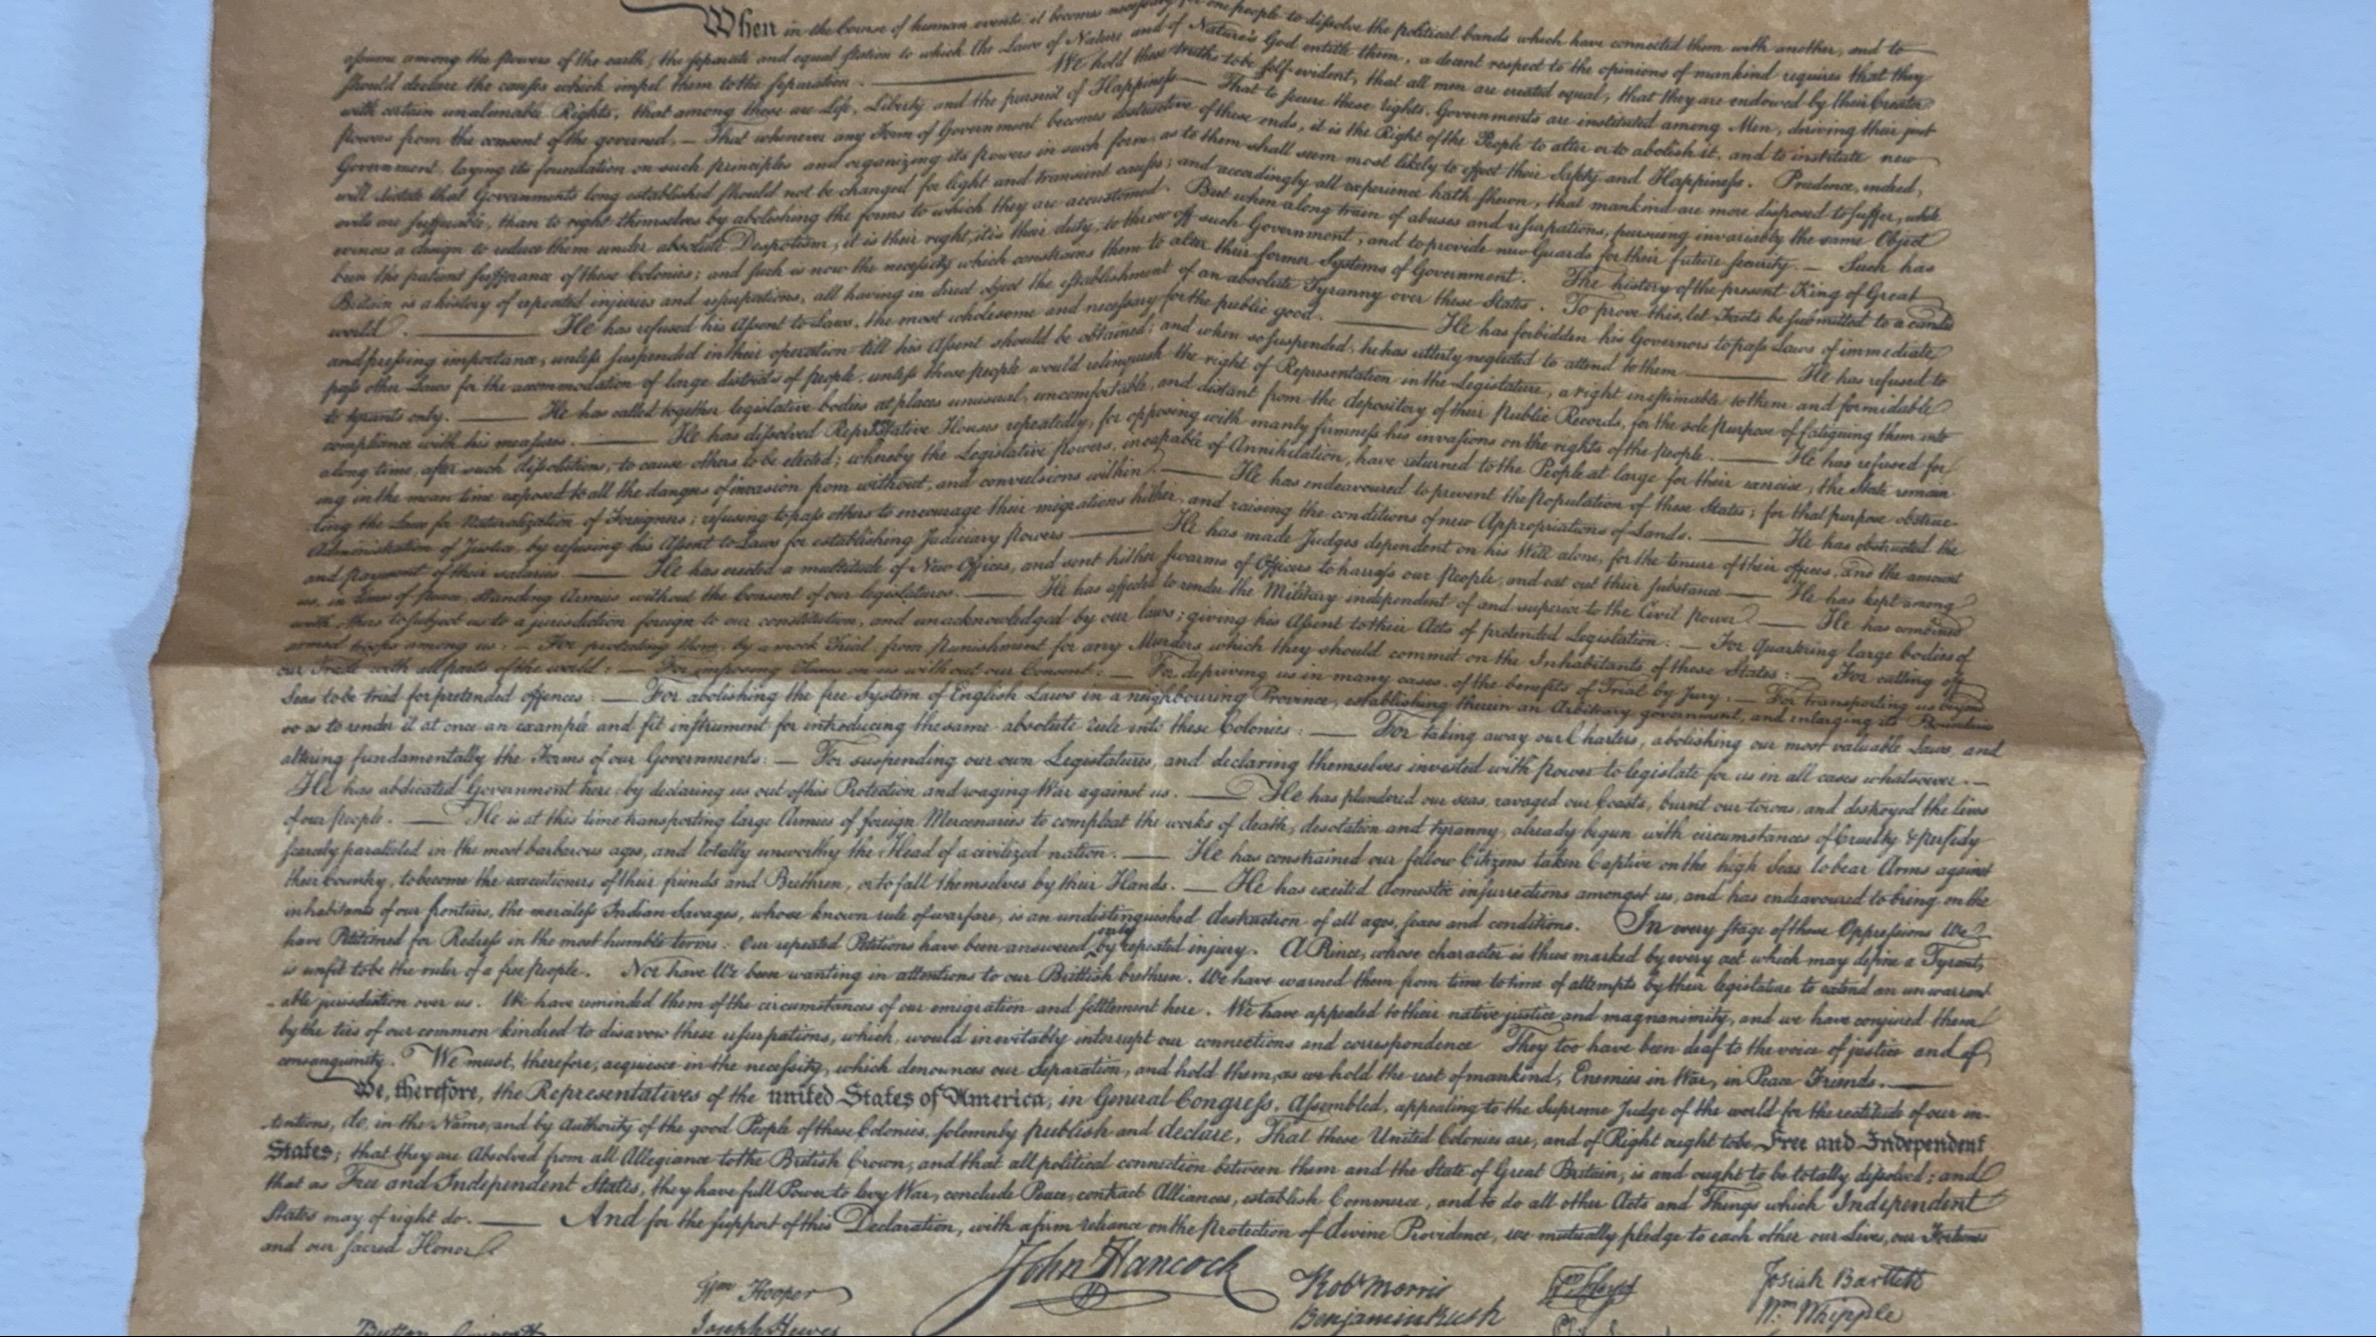 When in the Course of human events, it becomes necessary for one people to dissolve the political bands which have connected them with another, and to
assume among the powers of the earth, the separate and equal station to which the Laws of Nature and of Nature's God entitle them, a decent respect to the opinions of mankind requires that they
should declare the causes which impel them to the separation. — We hold these truths to be self-evident, that all men are created equal, that they are endowed by their Creator
with certain unalienable Rights, that among these are Life, Liberty and the pursuit of Happiness — That to secure these rights, Governments are instituted among Men, deriving their just
powers from the consent of the governed, — That whenever any Form of Government becomes destructive of these ends, it is the Right of the People to alter or to abolish it, and to institute new
Government, laying its foundation on such principles and organizing its powers in such form, as to them shall seem most likely to effect their Safety and Happiness. Prudence, indeed,
will dictate that Governments long established should not be changed for light and transient causes; and accordingly all experience hath shewn, that mankind are more disposed to suffer, while
evils are sufferable, than to right themselves by abolishing the forms to which they are accustomed. But when a long train of abuses and usurpations, pursuing invariably the same Object
evinces a design to reduce them under absolute Despotism, it is their right, it is their duty, to throw off such Government, and to provide new Guards for their future security. — Such has
been the patient sufferance of these Colonies; and such is now the necessity which constrains them to alter their former Systems of Government. The history of the present King of Great
Britain is a history of repeated injuries and usurpations, all having in direct object the establishment of an absolute Tyranny over these States. To prove this, let Facts be submitted to a candid
world. — He has refused his Assent to Laws, the most wholesome and necessary for the public good. — He has forbidden his Governors to pass Laws of immediate
and pressing importance, unless suspended in their operation till his Assent should be obtained; and when so suspended, he has utterly neglected to attend to them — He has refused to
pass other Laws for the accommodation of large districts of people, unless those people would relinquish the right of Representation in the Legislature, a right inestimable to them and formidable
to tyrants only. — He has called together legislative bodies at places unusual, uncomfortable, and distant from the depository of their Public Records, for the sole purpose of fatiguing them into
compliance with his measures. — He has dissolved Representative Houses repeatedly, for opposing with manly firmness his invasions on the rights of the people. — He has refused for
a long time, after such dissolutions, to cause others to be elected; whereby the Legislative powers, incapable of Annihilation, have returned to the People at large for their exercise; the State remain
ing in the mean time exposed to all the dangers of invasion from without, and convulsions within. — He has endeavoured to prevent the population of these States; for that purpose obstruc-
ting the Laws for Naturalization of Foreigners; refusing to pass others to encourage their migrations hither, and raising the conditions of new Appropriations of Lands. — He has obstructed the
Administration of Justice, by refusing his Assent to Laws for establishing Judiciary powers — He has made Judges dependent on his Will alone, for the tenure of their offices, and the amount
and payment of their salaries. — He has erected a multitude of New Offices, and sent hither swarms of Officers to harrass our people, and eat out their substance — He has kept among
us, in times of peace, Standing Armies without the Consent of our legislatures. — He has affected to render the Military independent of and superior to the Civil power. — He has combined
with others to subject us to a jurisdiction foreign to our constitution, and unacknowledged by our laws; giving his Assent to their Acts of pretended Legislation: — For Quartering large bodies of
armed troops among us: — For protecting them, by a mock Trial, from punishment for any Murders which they should commit on the Inhabitants of these States: — For cutting off
our Trade with all parts of the world: — For imposing Taxes on us without our Consent: — For depriving us in many cases, of the benefits of Trial by Jury: — For transporting us beyond
Seas to be tried for pretended offences: — For abolishing the free System of English Laws in a neighbouring Province, establishing therein an Arbitrary government, and enlarging its Boundaries
so as to render it at once an example and fit instrument for introducing the same absolute rule into these Colonies: — For taking away our Charters, abolishing our most valuable Laws, and
altering fundamentally the Forms of our Governments: — For suspending our own Legislatures, and declaring themselves invested with power to legislate for us in all cases whatsoever. —
He has abdicated Government here, by declaring us out of his Protection and waging War against us. — He has plundered our seas, ravaged our Coasts, burnt our towns, and destroyed the lives
of our people. — He is at this time transporting large Armies of foreign Mercenaries to compleat the works of death, desolation and tyranny, already begun with circumstances of Cruelty & perfidy
scarcely paralleled in the most barbarous ages, and totally unworthy the Head of a civilized nation. — He has constrained our fellow Citizens taken Captive on the high Seas to bear Arms against
their Country, to become the executioners of their friends and Brethren, or to fall themselves by their Hands. — He has excited domestic insurrections amongst us, and has endeavoured to bring on the
inhabitants of our frontiers, the merciless Indian Savages, whose known rule of warfare, is an undistinguished destruction of all ages, sexes and conditions. In every stage of these Oppressions We
have Petitioned for Redress in the most humble terms: Our repeated Petitions have been answered only by repeated injury. A Prince, whose character is thus marked by every act which may define a Tyrant,
is unfit to be the ruler of a free people. Nor have We been wanting in attentions to our Brittish brethren. We have warned them from time to time of attempts by their legislature to extend an unwarrant
-able jurisdiction over us. We have reminded them of the circumstances of our emigration and settlement here. We have appealed to their native justice and magnanimity, and we have conjured them
by the ties of our common kindred to disavow these usurpations, which, would inevitably interrupt our connections and correspondence They too have been deaf to the voice of justice and of
consanguinity. We must, therefore, acquiesce in the necessity, which denounces our Separation, and hold them, as we hold the rest of mankind, Enemies in War, in Peace Friends. —
We, therefore, the Representatives of the united States of America, in General Congress, Assembled, appealing to the Supreme Judge of the world for the rectitude of our in-
tentions, do, in the Name, and by Authority of the good People of these Colonies, solemnly publish and declare, That these United Colonies are, and of Right ought to be Free and Independent
States; that they are Absolved from all Allegiance to the British Crown, and that all political connection between them and the State of Great Britain, is and ought to be totally dissolved; and
that as Free and Independent States, they have full Power to levy War, conclude Peace, contract Alliances, establish Commerce, and to do all other Acts and Things which Independent
States may of right do. — And for the support of this Declaration, with a firm reliance on the protection of divine Providence, we mutually pledge to each other our Lives, our Fortunes
and our sacred Honor.
John Hancock
Wm Hooper
Robt Morris
Wm Floyd
Josiah Bartlett
Joseph Hewes
Benjamin Rush
Wm Whipple
Button Gwinnett